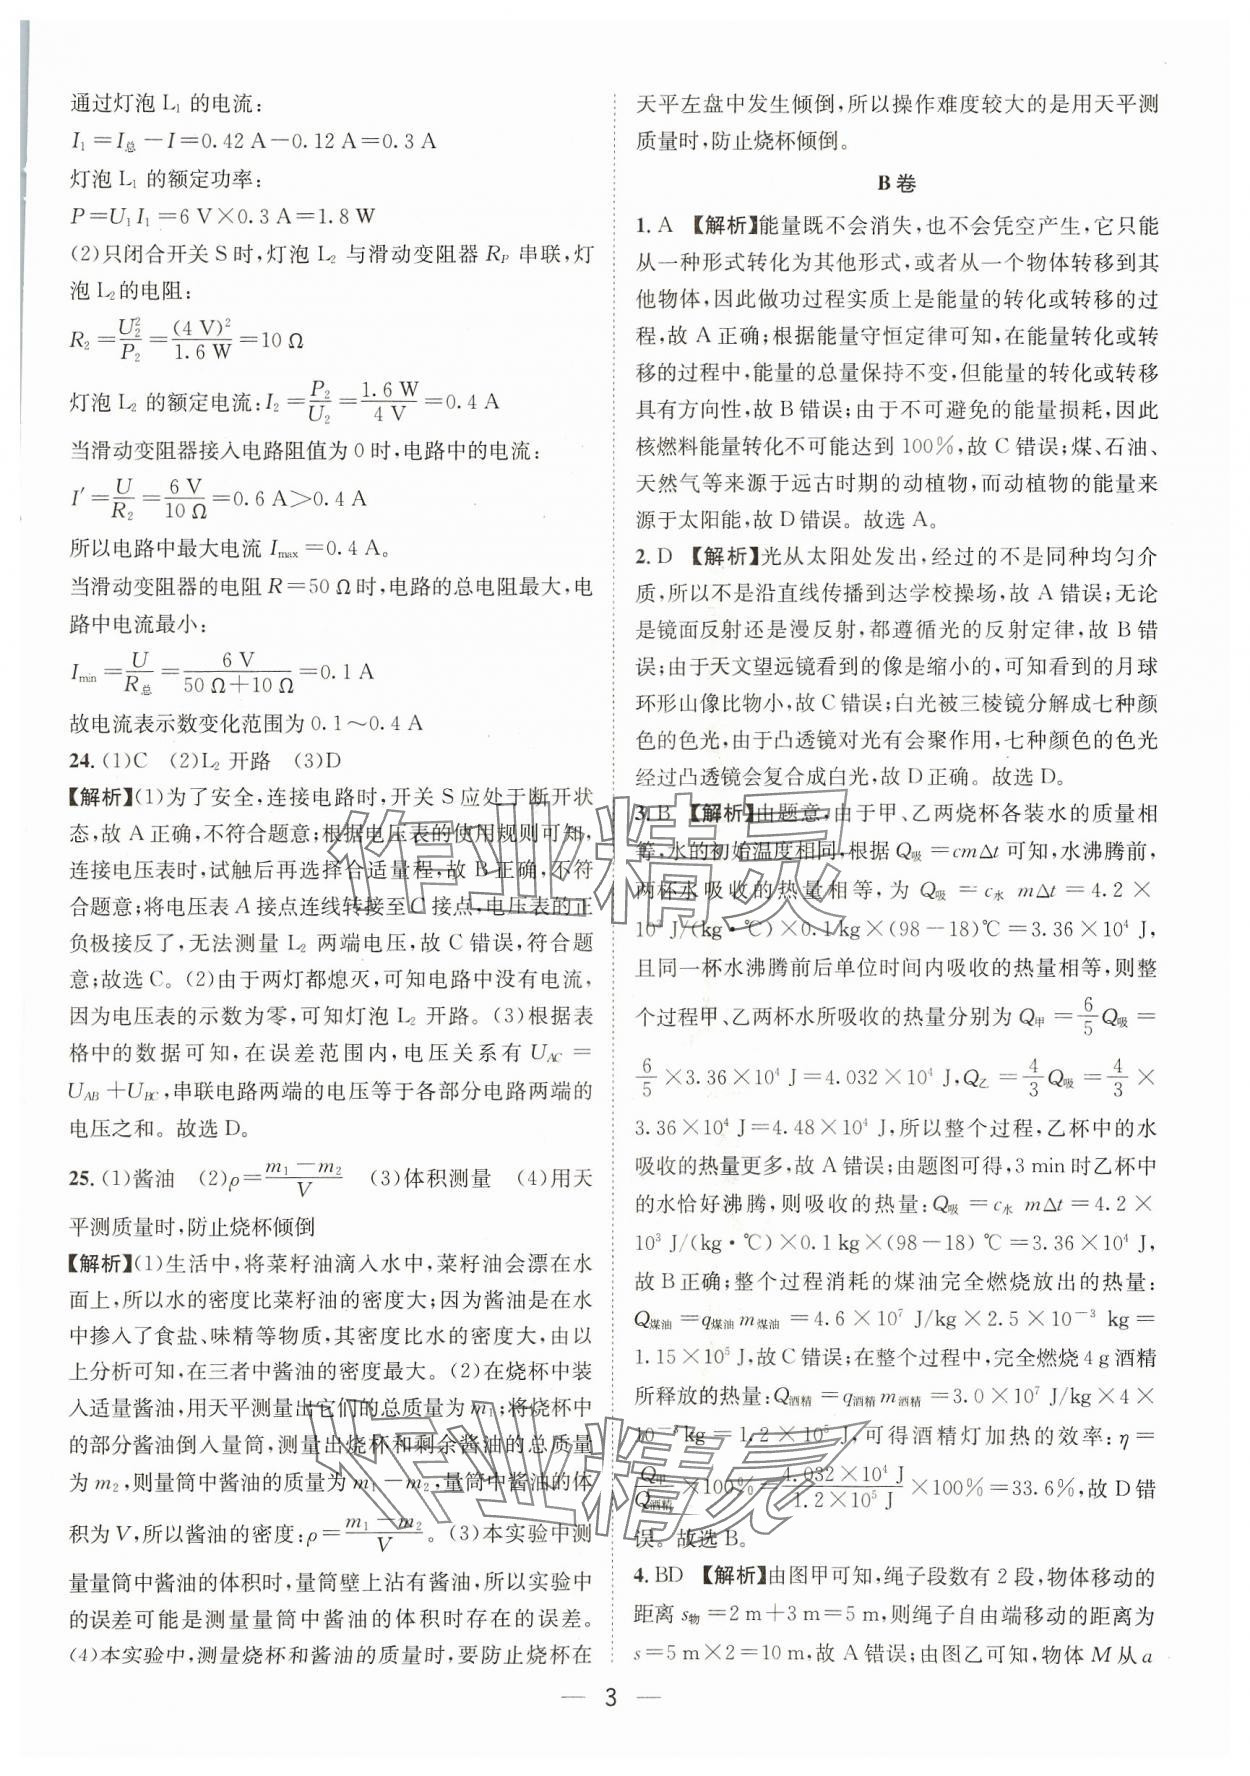 通过灯泡 L₁ 的电流：
I₁＝I总－I＝0.42 A－0.12 A＝0.3 A
灯泡 L₁ 的额定功率：
P＝U₁I₁＝6 V×0.3 A＝1.8 W
(2)只闭合开关 S 时，灯泡 L₂ 与滑动变阻器 R_P 串联，灯
泡 L₂的电阻：
R₂＝U₂²/P₂＝(4 V)²/1.6 W＝10 Ω
灯泡 L₂ 的额定电流：I₂＝P₂/U₂＝1.6 W/4 V＝0.4 A
当滑动变阻器接入电路阻值为 0 时，电路中的电流：
I′＝U/R₂＝6 V/10 Ω＝0.6 A＞0.4 A
所以电路中最大电流 I_max＝0.4 A。
当滑动变阻器的电阻 R＝50 Ω时，电路的总电阻最大，电
路中电流最小：
I_min＝U/R总＝6 V/(50 Ω＋10 Ω)＝0.1 A
故电流表示数变化范围为 0.1～0.4 A
24. (1)C (2)L₂ 开路 (3)D
【解析】(1)为了安全，连接电路时，开关 S 应处于断开状
态，故 A 正确，不符合题意；根据电压表的使用规则可知，
连接电压表时，试触后再选择合适量程，故 B 正确，不符
合题意；将电压表 A 接点连线转接至 C 接点，电压表的正
负极接反了，无法测量 L₂ 两端电压，故 C 错误，符合题
意；故选 C。(2)由于两灯都熄灭，可知电路中没有电流，
因为电压表的示数为零，可知灯泡 L₂ 开路。(3)根据表
格中的数据可知，在误差范围内，电压关系有 U_AC＝
U_AB＋U_BC，串联电路两端的电压等于各部分电路两端的
电压之和。故选 D。
25. (1)酱油 (2)ρ＝(m₁－m₂)/V (3)体积测量 (4)用天
平测质量时，防止烧杯倾倒
【解析】(1)生活中，将菜籽油滴入水中，菜籽油会漂在水
面上，所以水的密度比菜籽油的密度大；因为酱油是在水
中掺入了食盐、味精等物质，其密度比水的密度大，由以
上分析可知，在三者中酱油的密度最大。(2)在烧杯中装
入适量酱油，用天平测量出它们的总质量为 m₁；将烧杯中
的部分酱油倒入量筒，测量出烧杯和剩余酱油的总质量
为 m₂，则量筒中酱油的质量为 m₁－m₂，量筒中酱油的体
积为 V，所以酱油的密度：ρ＝(m₁－m₂)/V。(3)本实验中测
量量筒中酱油的体积时，量筒壁上沾有酱油，所以实验中
的误差可能是测量量筒中酱油的体积时存在的误差。
(4)本实验中，测量烧杯和酱油的质量时，要防止烧杯在
天平左盘中发生倾倒，所以操作难度较大的是用天平测
质量时，防止烧杯倾倒。
B 卷
1. A 【解析】能量既不会消失，也不会凭空产生，它只能
从一种形式转化为其他形式，或者从一个物体转移到其
他物体，因此做功过程实质上是能量的转化或转移的过
程，故 A 正确；根据能量守恒定律可知，在能量转化或转
移的过程中，能量的总量保持不变，但能量的转化或转移
具有方向性，故 B 错误；由于不可避免的能量损耗，因此
核燃料能量转化不可能达到 100％，故 C 错误；煤、石油、
天然气等来源于远古时期的动植物，而动植物的能量来
源于太阳能，故 D 错误。故选 A。
2. D 【解析】光从太阳处发出，经过的不是同种均匀介
质，所以不是沿直线传播到达学校操场，故 A 错误；无论
是镜面反射还是漫反射，都遵循光的反射定律，故 B 错
误；由于天文望远镜看到的像是缩小的，可知看到的月球
环形山像比物小，故 C 错误；白光被三棱镜分解成七种颜
色的色光，由于凸透镜对光有会聚作用，七种颜色的色光
经过凸透镜会复合成白光，故 D 正确。故选 D。
3. B 【解析】由题意，由于甲、乙两烧杯各装水的质量相
等，水的初始温度相同，根据 Q吸＝cmΔt 可知，水沸腾前，
两杯水吸收的热量相等，为 Q吸＝c水 mΔt＝4.2×
10³ J/(kg·℃)×0.1 kg×(98－18)℃＝3.36×10⁴ J，
且同一杯水沸腾前后单位时间内吸收的热量相等，则整
个过程甲、乙两杯水所吸收的热量分别为 Q甲＝6/5 Q吸＝
6/5×3.36×10⁴ J＝4.032×10⁴ J，Q乙＝4/3 Q吸＝4/3×
3.36×10⁴ J＝4.48×10⁴ J，所以整个过程，乙杯中的水
吸收的热量更多，故 A 错误；由题图可得，3 min时乙杯中
的水恰好沸腾，则吸收的热量：Q吸＝c水 mΔt＝4.2×
10³ J/(kg·℃)×0.1 kg×(98－18) ℃＝3.36×10⁴ J，
故 B 正确；整个过程消耗的煤油完全燃烧放出的热量：
Q煤油＝q煤油 m煤油＝4.6×10⁷ J/kg×2.5×10⁻³ kg＝
1.15×10⁵ J，故 C 错误；在整个过程中，完全燃烧 4 g 酒精
所释放的热量：Q酒精＝q酒精 m酒精＝3.0×10⁷ J/kg×4×
10⁻³ kg＝1.2×10⁵ J，可得酒精灯加热的效率：η＝
Q甲/Q酒精×100％＝4.032×10⁴ J/1.2×10⁵ J×100％＝33.6％，故 D 错
误。故选 B。
4. BD 【解析】由图甲可知，绳子段数有 2 段，物体移动的
距离 s物＝2 m＋3 m＝5 m，则绳子自由端移动的距离为
s＝5 m×2＝10 m，故 A 错误；由图乙可知，物体 M 从 a
— 3 —
作业精灵
作业精灵